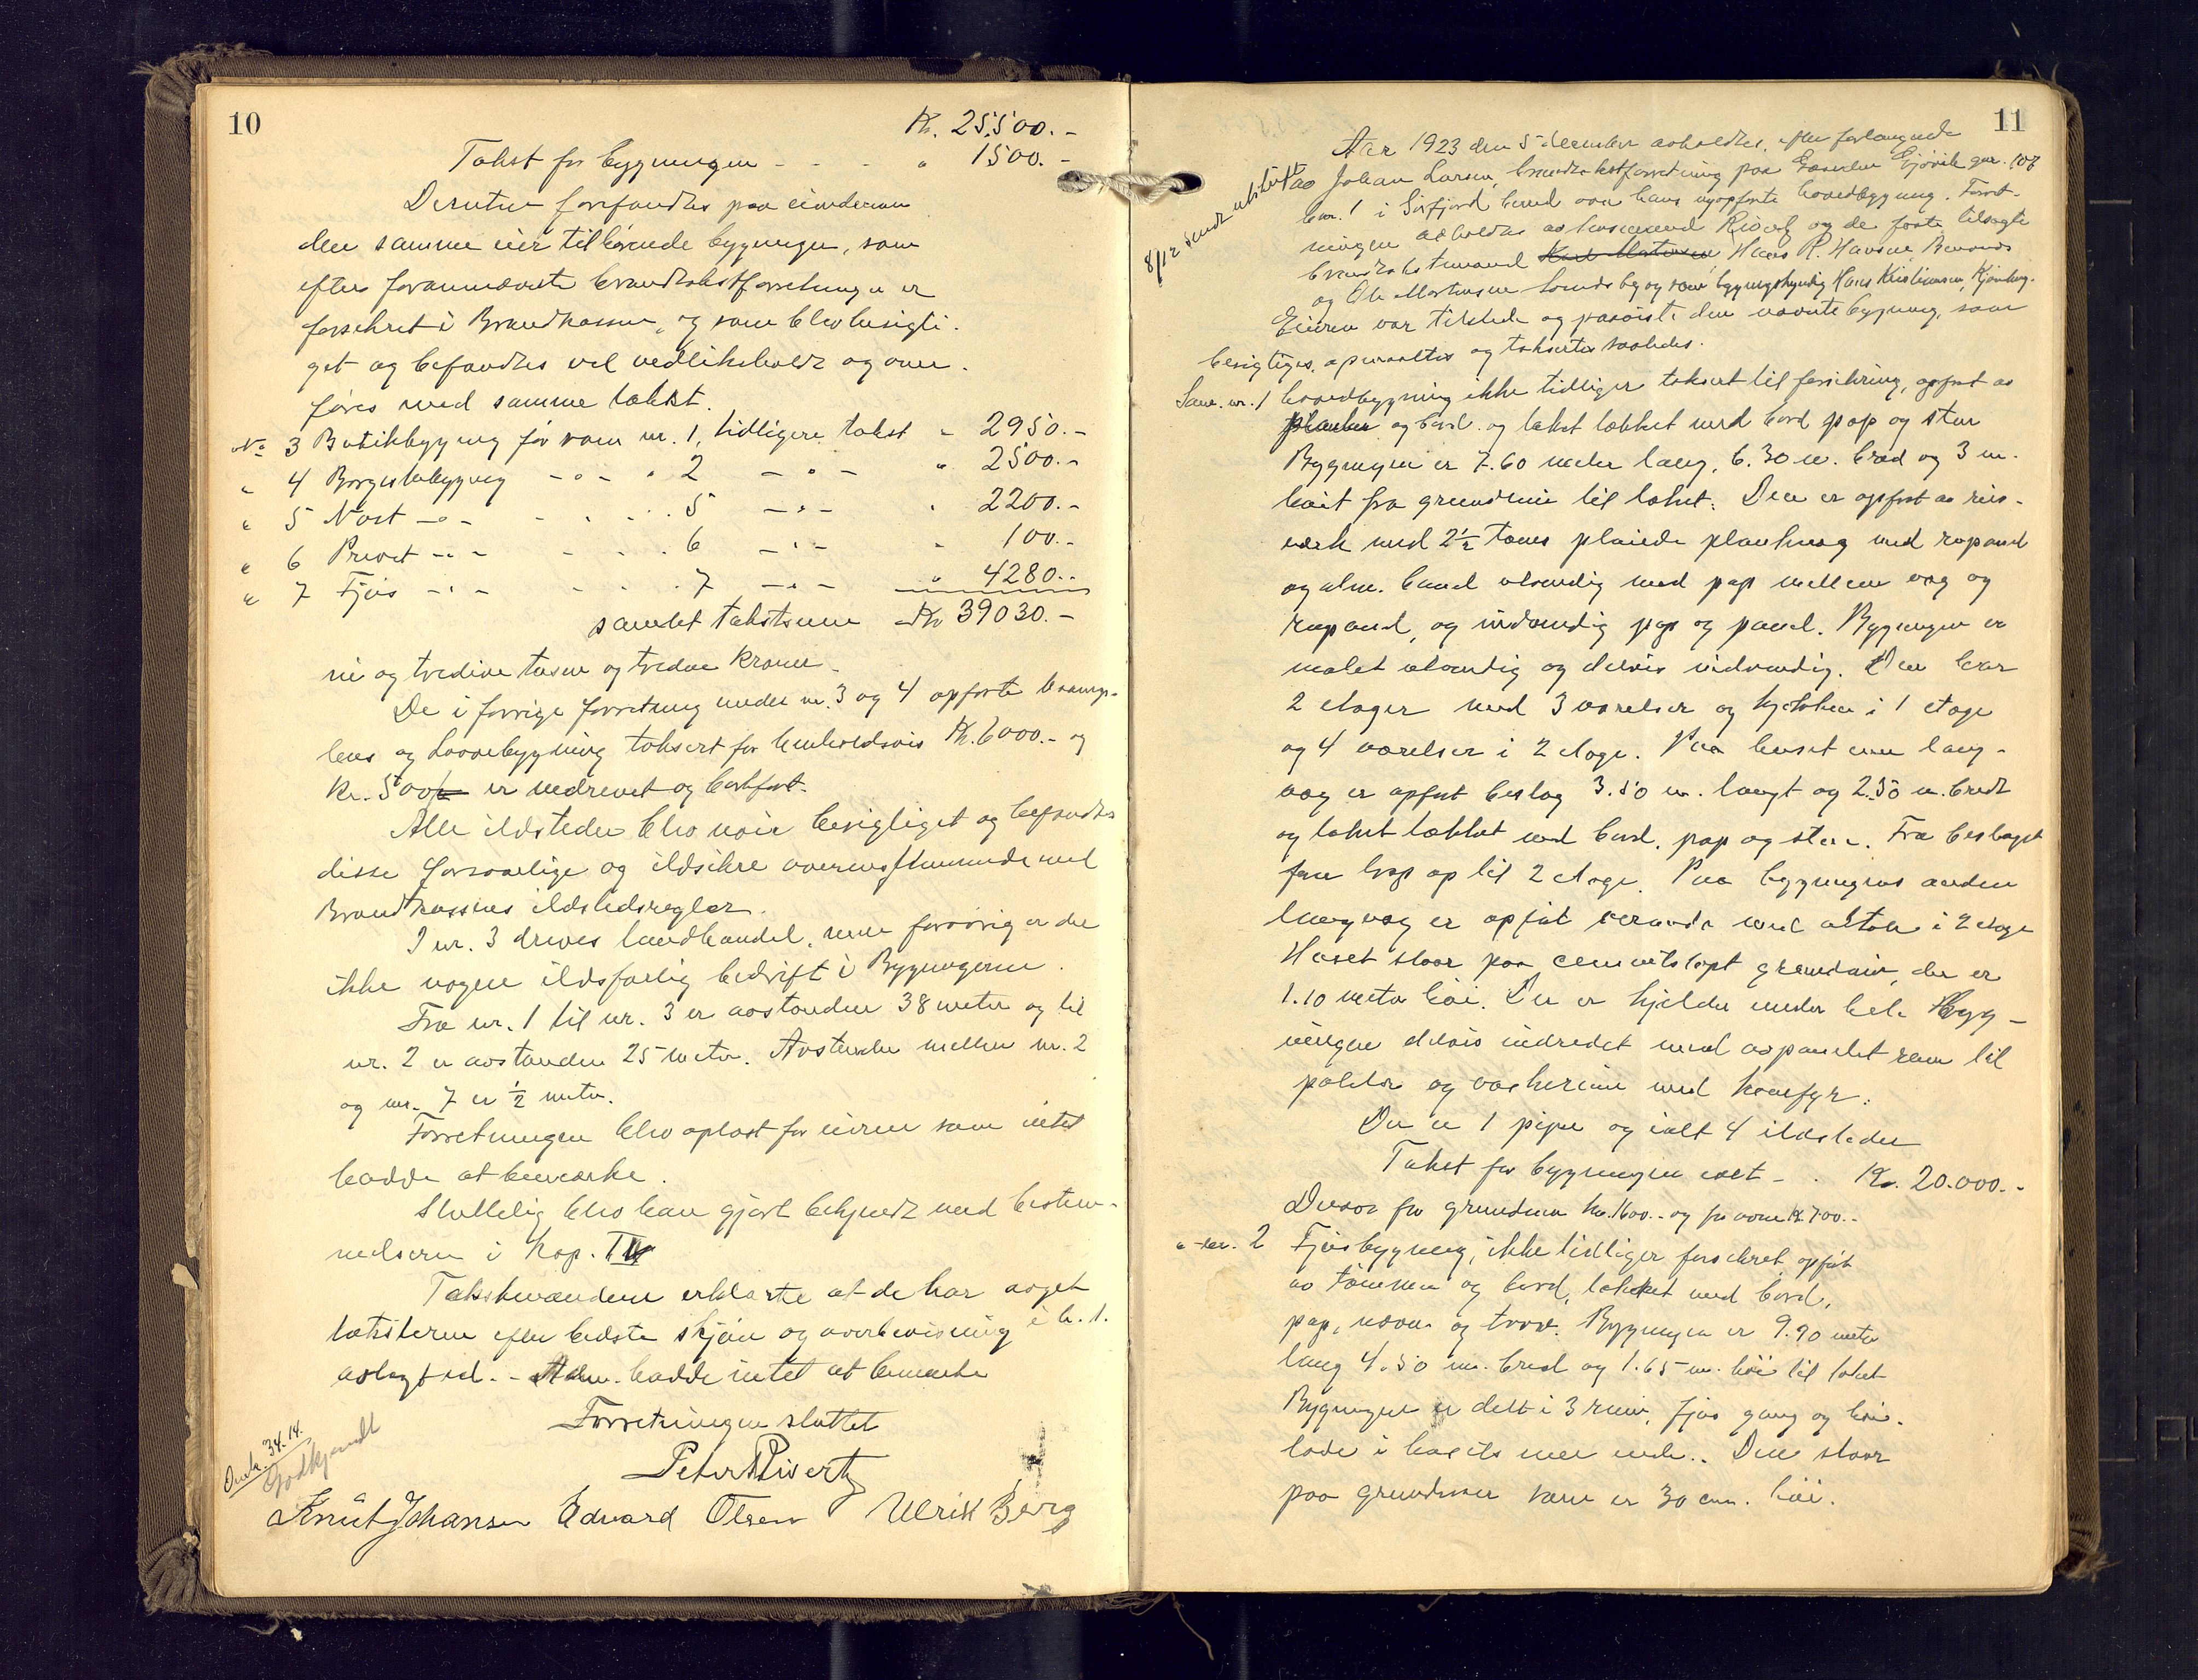 10
Kr. 25500.-
Takst for bygningen - - - " 1500.-
Desuten forefandtes paa eiendommen
den samme eier tilhørende bygninger, som
efter forannævnte brandtakstforretninger er
forsikret i Brandkassen, og som blev besigti-
get og befandtes vel vedlikeholdt og over-
føres med samme takst.
No 3 Butikbygning før som nr. 1, tidligere takst " 2950.-
" 4 Borgstuebygning -"- " 2 -"- " 2500.-
" 5 Nøst -"- 5 -"- " 2200.-
" 6 Privet -"- 6 -"- " 100.-
" 7 Fjøs -"- 7 -"- " 4280.-
samlet takstsum Kr 39030.-
ni og tredive tusen og tredve kroner.
De i forrige forretning under nr. 3 og 4 opførte
og Laavebygning taksert for henholdsvis Kr. 6000.- og
kr. 500 er nedrevet og bortført.
Alle ildsteder blev nøie besigtiget og befandtes
disse forsvarlige og ildsikre overensstemmende med
Brandkassens ildstedsregler.
I nr. 3 drives landhandel, men forøvrig er der
ikke nogen ildsfarlig bedrift i Bygningerne.
Fra nr. 1 til nr. 3 er avstanden 38 meter og til
nr. 2 er avstanden 25 meter. Avstanden mellem nr. 2
og nr. 7 er ½ meter.
Forretningen blev oplæst for eieren som intet
hadde at bemerke.
Sluttelig blev han gjort bekjendt med bestem-
melserne i kap. IV
Takstmændene erklærte at de har avgit
taksterne efter bedste skjøn og overbevisning i h. t.
avlagt ed. - Adm. hadde intet at bemerke
Forretningen sluttet
Peter Rivertz
Knut Johansen Edvard Olsen Ulrik Berg
34.14.
Godkjendt
11
8/12 sendt utskrift
Aar 1923 den 5 december avholdtes, efter forlangende
av Johan Larsen, brandtakstforretning paa Gjøvik gnr. 107
bnr. 1 i Sørfjord herred over hans nyopførte hovedbygning. Forret-
ningen avholdes av lensmand Rivertz og de faste tilsagte
brandtakstmænd Hans R. Hansen
og Ole Mortensen og som bygningskyndig Hans Kristiansen,
Eieren var tilstede og paaviste den nævnte bygning, som
besigtiges, opmaaltes og takseres saaledes.
Løp. nr. 1 hovedbygning ikke tidligere taksert til forsikring, opført av
planker og bord og taket tækket med bord pap og sten
Bygningen er 7.60 meter lang, 6.30 m. bred og 3 m.
høit fra grundmur til taket. Den er opført av reis-
verk med 2½ toms pløiede plankevæg med rupanel
og alm. panel utvendig med pap mellem væg og
rupanel, og indvendig pap og panel. Bygningen er
malet utvendig og delvis indvendig. Den har
2 etager med 3 værelser og kjøkken i 1 etage
og 4 værelser i 2 etage. Paa huset ene lang-
væg er opført beslag 3.50 m. langt og 2.50 m. bredt
og taket tækket med bord, pap og sten. Fra beslaget
fører trap op til 2 etage. Paa bygningens anden
langvæg er opført veranda med altan i 2 etage
Huset staar paa cementstøpt grundmur, der er
1.10 meter høi. Der er kjelder under hele Byg-
ningen delvis indredet med avpanelet rum til
poteter og vaskerum med komfyr.
Der er 1 pipe og ialt 4 ildsteder
Takst for bygningen ialt - - Kr. 20.000.-
Derav for grundmur kr. 1600.- og for ovne kr. 700.-
" nr. 2 Fjøsbygning, ikke tidligere forsikret opført
av tømmer og bord, tækket med bord,
pap, næver og torv. Bygningen er 9.90 meter
lang 4.50 m. bred og 1.65 m. høi til taket
Bygningen er delt i 3 rum, fjøs gang og høi-
lade i husets ene ende. Den staar
paa grundmur som er 30 cm. høi.